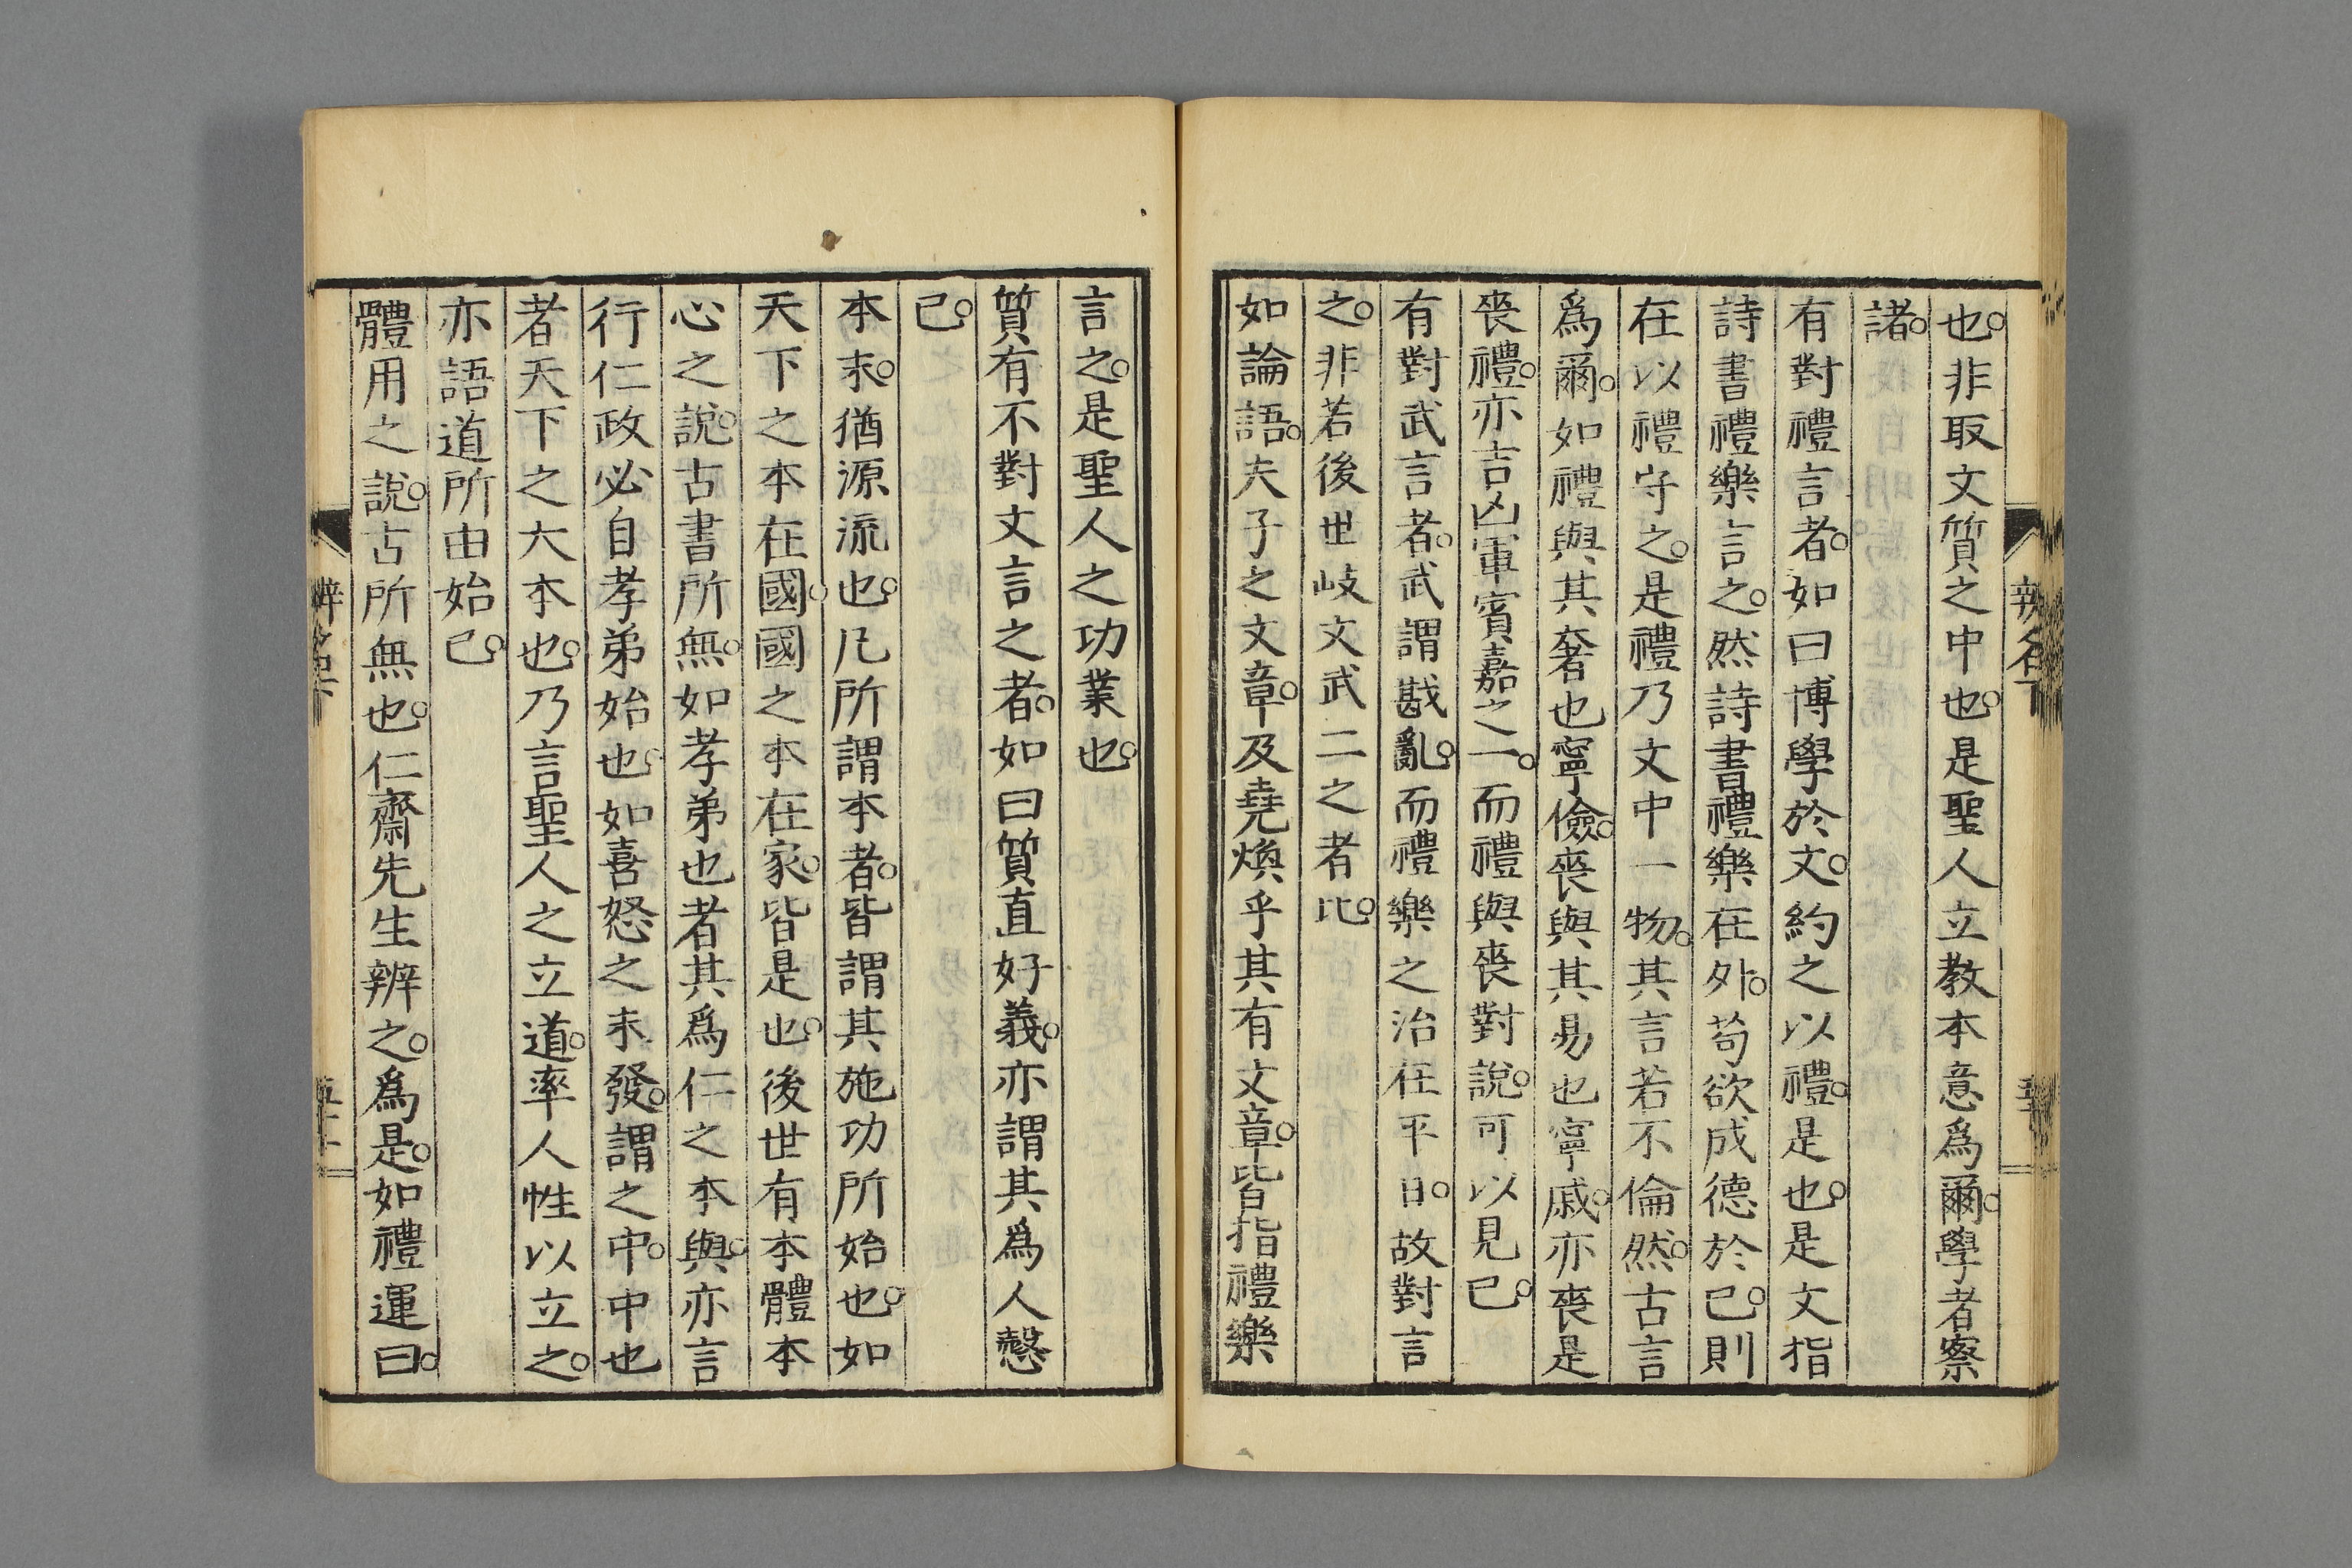 也。非取文質之中也。是聖人立教本意爲爾。學者察
諸。
有對禮言者。如曰博學於文。約之以禮。是也。是文指
詩書禮樂言之。然詩書禮樂在外。苟欲成德於己。則
在以禮守之。是禮乃文中一物。其言若不倫然。古言
爲爾。如禮與其奢也寧儉。喪與其易也寧戚。亦喪是
喪禮。亦吉凶軍賓嘉之一。而禮與喪對說。可以見已。
有對武言者。武謂戡亂。而禮樂之治在平日。故對言
之。非若後世岐文武二之者比。
如論語。夫子之文章。及堯煥乎其有文章。皆指禮樂
言之。是聖人之功業也。
質有不對文言之者。如曰質直好義。亦謂其爲人愨
已。
本末。猶源流也。凡所謂本者。皆謂其施功所始也。如
天下之本在國。國之本在家。皆是也。後世有本體本
心之說。古書所無。如孝弟也者其爲仁之本與。亦言
行仁政必自孝弟始也。如喜怒之未發。謂之中。中也
者天下之大本也。乃言聖人之立道。率人性以立之。
亦語道所由始已。
體用之說。古所無也。仁齋先生辨之。爲是。如禮運曰。
辨名下